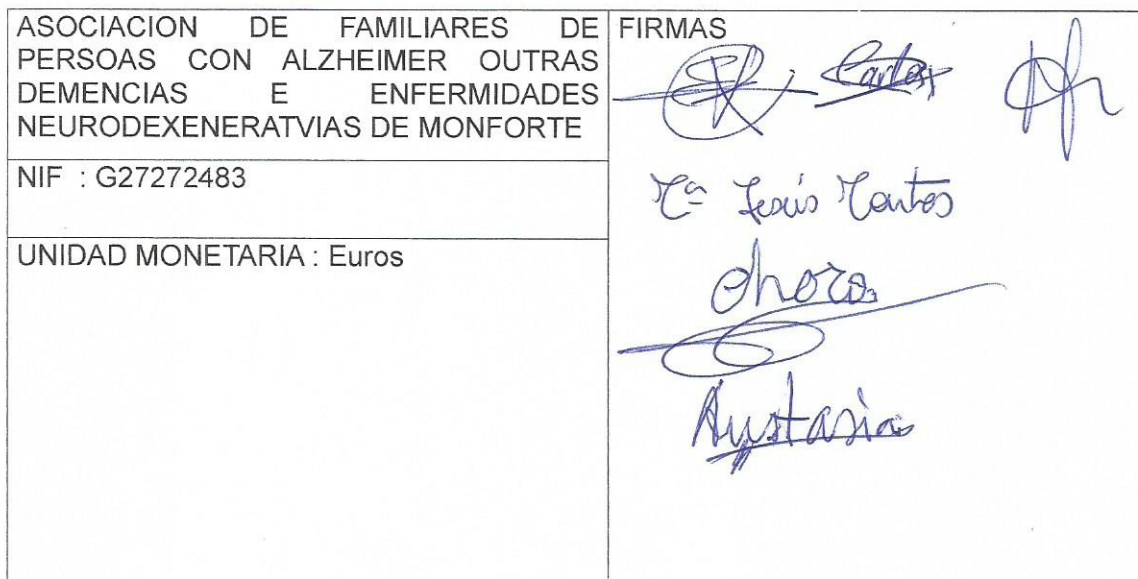 ASOCIACION DE FAMILIARES DE
PERSOAS CON ALZHEIMER OUTRAS
DEMENCIAS E ENFERMIDADES
NEURODEXENERATVIAS DE MONFORTE
NIF : G27272483
UNIDAD MONETARIA : Euros
FIRMAS
Carlos
Mª Jesús